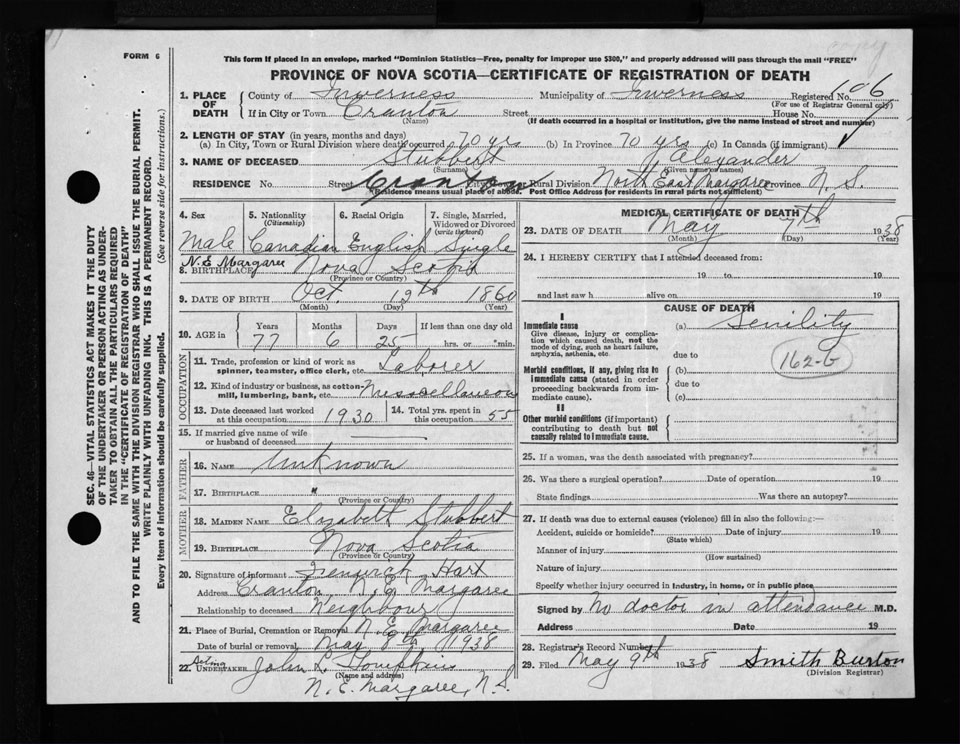 copy
FORM 6
This form If placed in an envelope, marked "Dominion Statistics—Free, penalty for improper use $300," and properly addressed will pass through the mail "FREE"
PROVINCE OF NOVA SCOTIA—CERTIFICATE OF REGISTRATION OF DEATH
SEC. 46—VITAL STATISTICS ACT MAKES IT THE DUTY
OF THE UNDERTAKER OR PERSON ACTING AS UNDER-
TAKER TO OBTAIN ALL THE PARTICULARS REQUIRED
IN THE "CERTIFICATE OF REGISTRATION OF DEATH"
AND TO FILE THE SAME WITH THE DIVISION REGISTRAR WHO SHALL ISSUE THE BURIAL PERMIT.
WRITE PLAINLY WITH UNFADING INK. THIS IS A PERMANENT RECORD.
Every item of information should be carefully supplied. (See reverse side for instructions.)
1. PLACE OF DEATH County of Inverness Municipality of Inverness Registered No. 106
(For use of Registrar General only)
If in City or Town Cranton Street House No.
(Name) (If death occurred in a hospital or institution, give the name instead of street and number)
2. LENGTH OF STAY (in years, months and days)
(a) In City, Town or Rural Division where death occurred 70 yrs (b) In Province 70 yrs (c) In Canada (if immigrant)
3. NAME OF DECEASED Stubbert Alexander
(Surname) (Given name or names)
RESIDENCE No. Street Cranton Rural Division North East Margaree Province N. S.
(Residence means usual place of abode. Post Office Address for residents in rural parts not sufficient)
4. Sex 5. Nationality (Citizenship) 6. Racial Origin 7. Single, Married, Widowed or Divorced (write the word)
Male Canadian English Single
N.E. Margaree
8. BIRTHPLACE Nova Scotia
(Province or Country)
9. DATE OF BIRTH Oct. 13th 1860
(Month) (Day) (Year)
10. AGE in Years Months Days If less than one day old
77 6 25 hrs. or min.
OCCUPATION
11. Trade, profession or kind of work as spinner, teamster, office clerk, etc. Laborer
12. Kind of industry or business, as cotton-mill, lumbering, bank, etc. Messcellaneous
13. Date deceased last worked at this occupation 1930 14. Total yrs. spent in this occupation 55
15. If married give name of wife or husband of deceased
FATHER
16. NAME Unknown
17. BIRTHPLACE "
(Province or Country)
MOTHER
18. MAIDEN NAME Elizabeth Stubbert
19. BIRTHPLACE Nova Scotia
(Province or Country)
20. Signature of informant Fenwick Hart
Address Cranton N. E. Margaree
Relationship to deceased Neighbour
21. Place of Burial, Cremation or Removal N. E. Margaree
Date of burial or removal May 8th 1938
22. UNDERTAKER John L. Tompkins
(Name and address)
N. E. Margaree, N. S.
MEDICAL CERTIFICATE OF DEATH
23. DATE OF DEATH May 7th 1938
(Month) (Day) (Year)
24. I HEREBY CERTIFY that I attended deceased from:
19 to 19
and last saw h alive on 19
CAUSE OF DEATH
I
Immediate cause
Give disease, injury or complication which caused death, not the mode of dying, such as heart failure, asphyxia, asthenia, etc.
(a) Senility
due to
162-b
Morbid conditions, if any, giving rise to immediate cause (stated in order proceeding backwards from immediate cause).
(b)
due to
(c)
II
Other morbid conditions (if important) contributing to death but not causally related to immediate cause.
25. If a woman, was the death associated with pregnancy?
26. Was there a surgical operation? Date of operation 19
State findings Was there an autopsy?
27. If death was due to external causes (violence) fill in also the following:—
Accident, suicide or homicide? Date of injury 19
(State which)
Manner of injury
(How sustained)
Nature of injury
Specify whether injury occurred in industry, in home, or in public place
Signed by No doctor in attendance M.D.
Address Date 19
28. Registrar's Record Number
29. Filed May 9th 1938 Smith Burton
(Division Registrar)